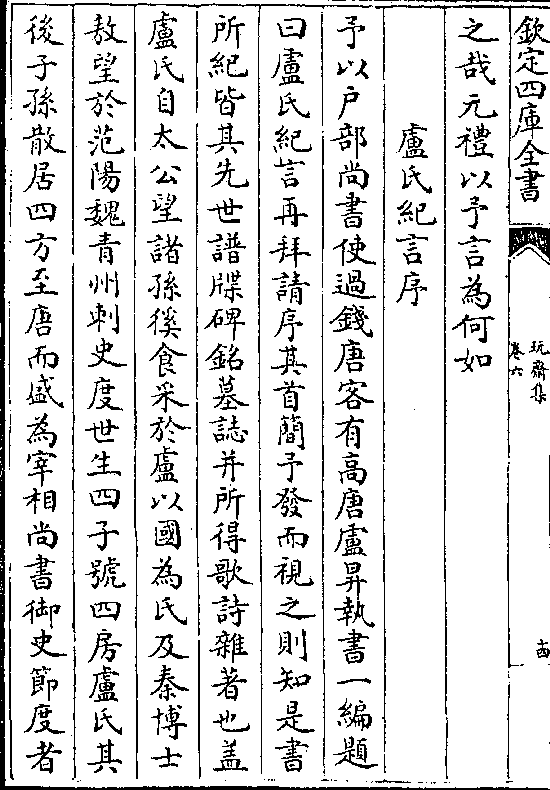 欽定四庫全書
玩齋集
卷六
十四
之哉元禮以予言為何如
盧氏紀言序
予以户部尚書使過錢唐客有高唐盧昇執書一編題
曰盧氏紀言再拜請序其首簡予發而視之則知是書
所紀皆其先世譜牒碑銘墓誌并所得歌詩雜著也盖
盧氏自太公望諸孫徯食采於盧以國為氏及秦博士
敖望於范陽魏青州刺史度世生四子號四房盧氏其
後子孫散居四方至唐而盛為宰相尚書御史節度者